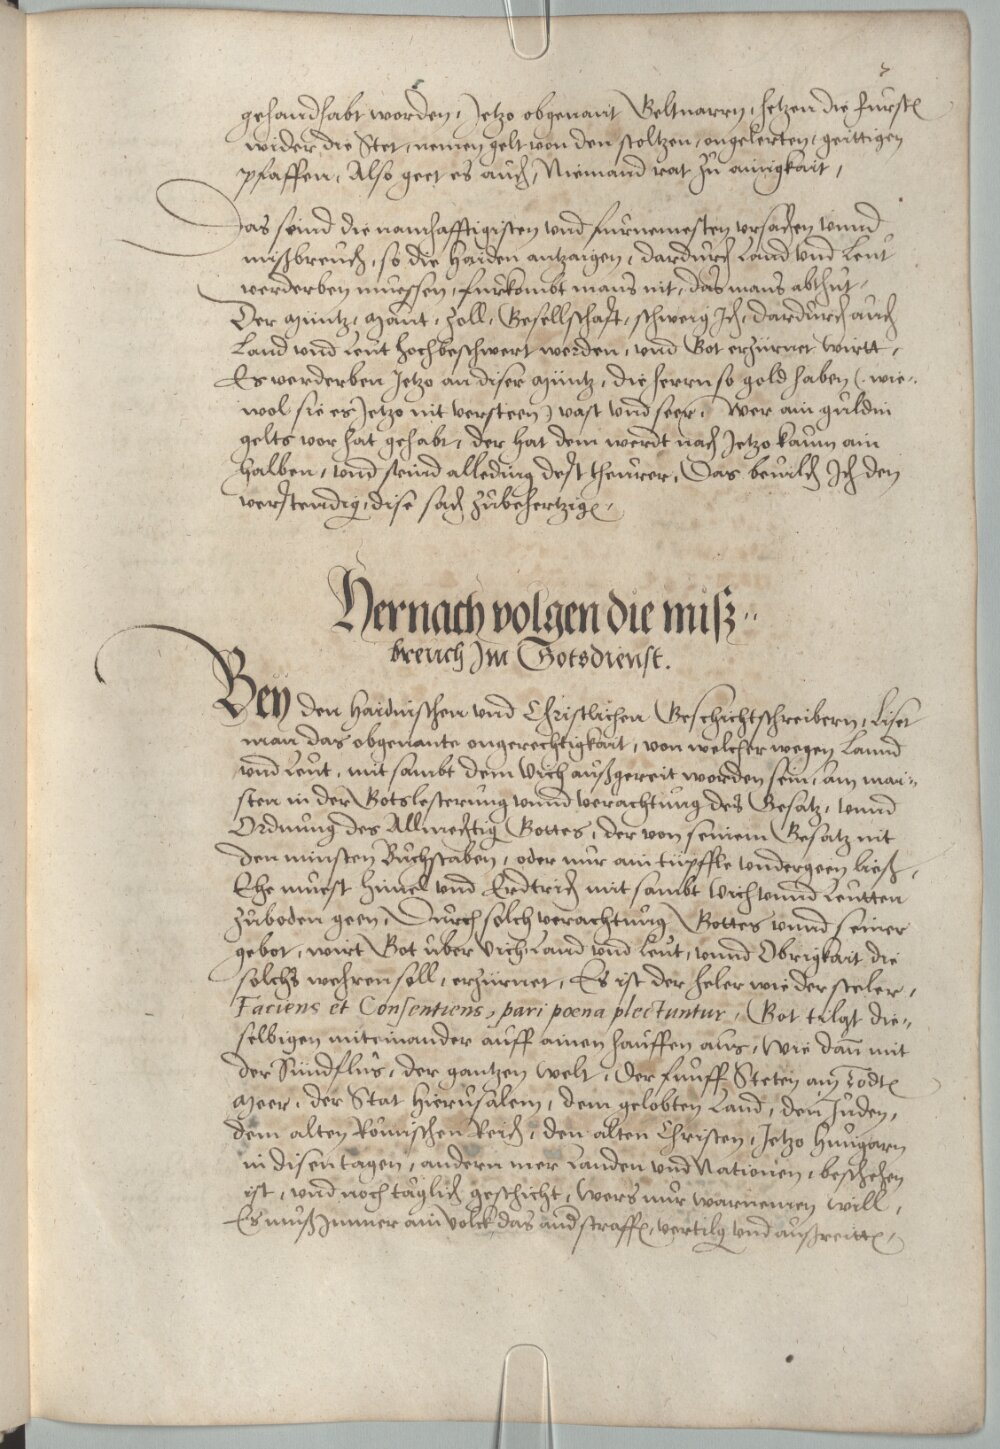 7
gehandhabt worden, Jetzo obgenant Geltnarrn, hetzen die fürstn
wider die Stet, nemen gelt von den stoltzen, ongelerten, geittigen
pfaffen, Also geet es auch, Niemand rat zu ainigkait,
Das seind die namhafftigisten vnd fürnemesten vrsachen vnnd
mißbreuch, so die Haiden antzaigen, dardurch Land vnd Leut
verderben muessen, fürkombt mans nit, das mans abthut,
Der Müntz, Maut, Zoll, Gesellschafft, schweig Jch, dardurch auch
Land vnd Leut hochbeschwert werden, vnd Got erzürnet wirtt,
Es verderben Jetzo an diser Müntz, die herrn so gold haben (wie-
wol sie es Jetzo nit versteen) vast vnd seer, Wer ain guldin
gelts vor hat gehabt, der hat dem werdt nach Jetzo kaum ain
halben, vnd seind alleding dest theurer, Das beuilch Jch den
verstendig, dise sach zubehertzign,
Hernach volgen die miß-
breuch Jm Gotsdienst.
Bey den Haidnischen vnd Christlichen Geschichtschreibern, Liset
man das obgenante ongerechtigkait, von welcher wegen Lannd
vnd Leut, mit sambt dem Vich außgereit worden sein, am mai-
sten in der Gotslesterung vnnd verachtung des Gesatz, vnnd
Ordnung des Allmechtig Gottes, der von seinem Gesatz nit
den minsten Buchstaben, oder nur ain tüpffle vndergeen ließ,
Ehe muest himel vnd Erdtrich mit sambt Vich vnnd Leutten
zuboden geen, Durch solch verachtung Gottes vnnd seiner
gebot, wirt Got über Vich Land vnd Leut, vnnd Obrigkait die
solchs wehren soll, erzürnet, Es ist der heler wie der steler,
Faciens et Consentiens, pari poena plectuntur, Got tilgt die-
selbigen miteinander auff ainen hauffen aus, Wie dañ mit
der Sündflus, der gantzen welt, der fünff Steten am Todtn
Meer, der Stat Hierusalem, dem gelobten Land, den Juden,
dem alten Römischen Reich, den alten Christen, Jetzo Hungarn
in disen tagen, andern mer Landen vnd Nationen, beschehen
ist, vnd noch täglich geschicht, wers nur warnemen will,
Es muß Jmmer ain volck das and straffn, vertilg vnd außreittn,